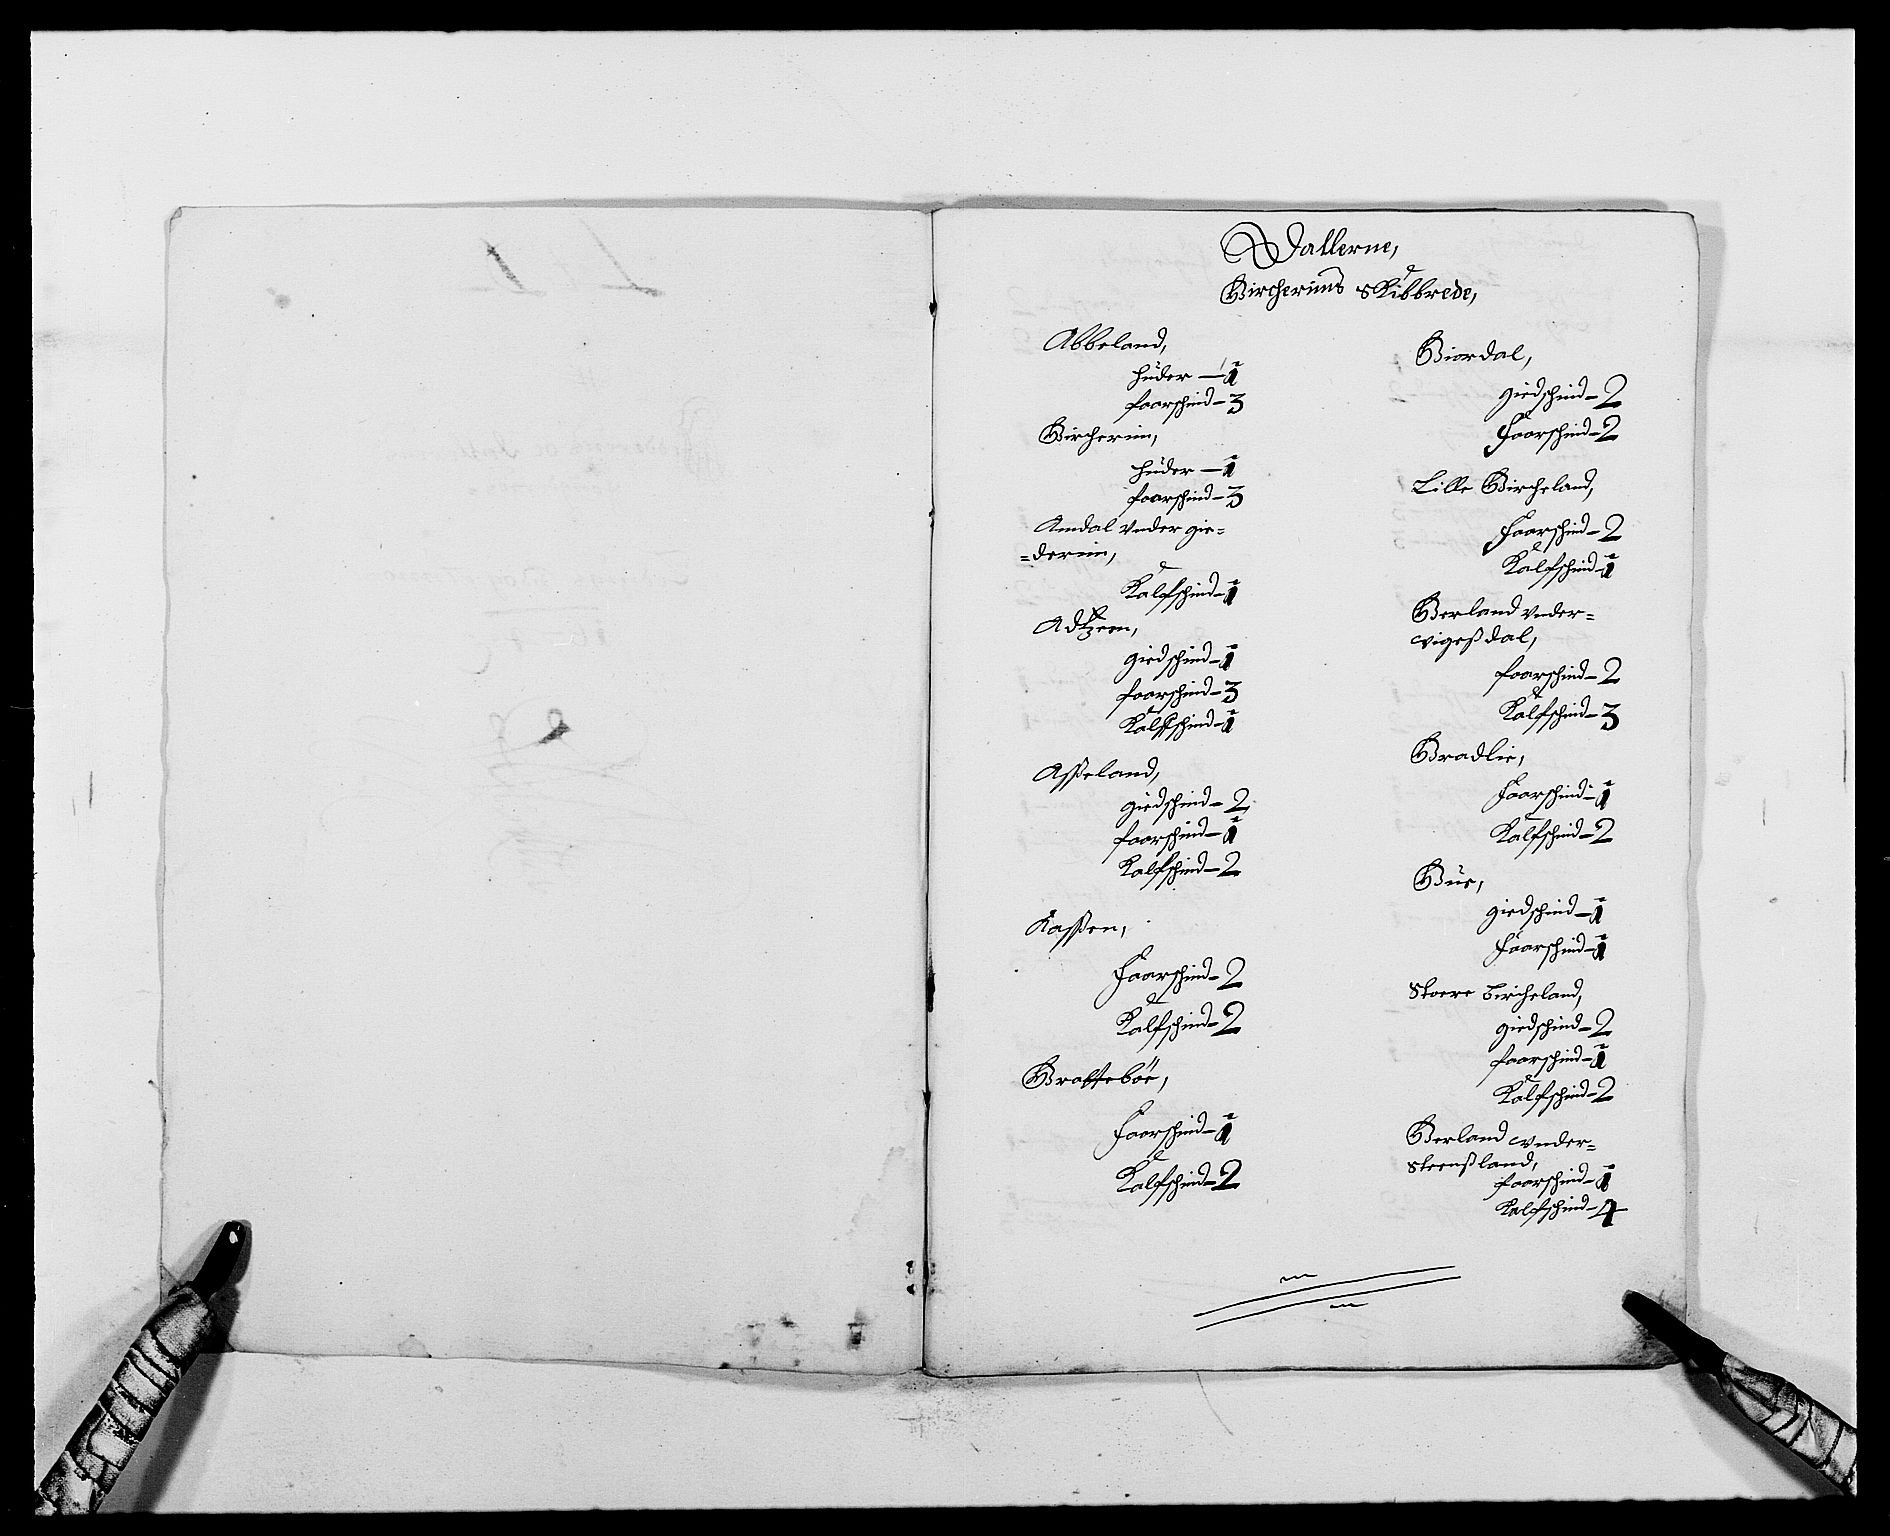 Dallerne,
Bircherims skibbrede,
Abbeland,
huder – 1
faarschind – 3
Bircherim,
huder – 1
faarschind – 3
Amdal vnder gie=
=derim,
Kalfschind – 1
Adtzem,
giedschind – 1
faarschind – 3
Kalfschind – 1
Asseland,
giedschind – 2
faarschind – 1
Kalfschind – 2
Aassen,
Faarschind – 2
Kalfschind – 2
Bratteböe,
Faarschind – 1
Kalfschind – 2
Biordal,
giedschind – 2
Faarschind – 2
Lille Bircheland,
Faarschind – 2
Kalfschind – 1
Berland vnder=
vigeßdal,
faarschind – 2
Kalfschind – 3
Bradlie,
Faarschind – 1
Kalfschind – 2
Bue,
giedschind – 1
Faarschind – 1
Stoere bircheland,
giedschind – 2
faarschind – 1
Kalfschind – 2
Berland vnder=
steenßland,
faarschind – 1
Kalfschind – 4